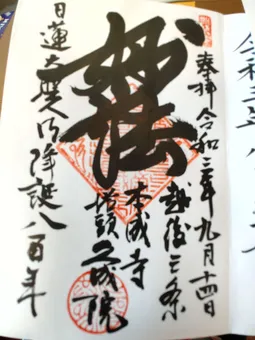 奉拝 令和三年九月十四日
越後三条
本成寺
塔頭 久成院
妙法
日蓮大聖人御降誕八百年